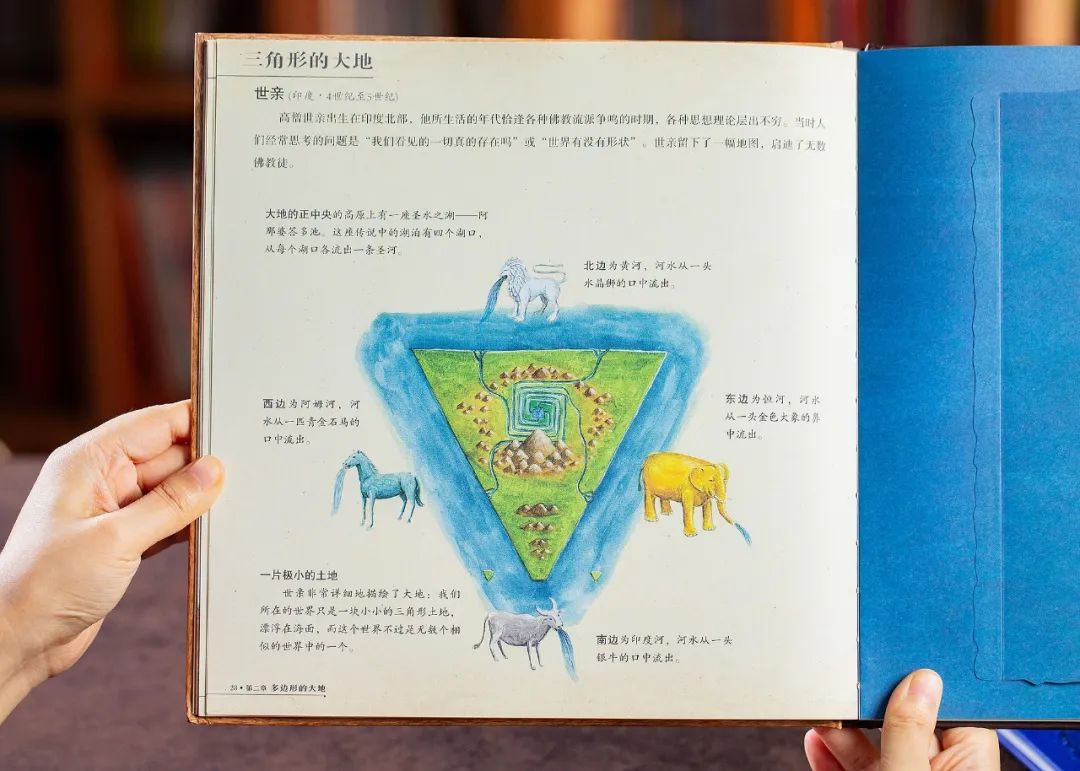 三角形的大地
世亲(印度·4世纪至5世纪)
高僧世亲出生在印度北部，他所生活的年代恰逢各种佛教流派争鸣的时期，各种思想理论层出不穷。当时人
们经常思考的问题是“我们看见的一切真的存在吗”或“世界有没有形状”。世亲留下了一幅地图，启迪了无数
佛教徒。
大地的正中央的高原上有一座圣水之湖——阿
那婆答多池。这座传说中的湖泊有四个湖口，
从每个湖口各流出一条圣河。
北边为黄河，河水从一头
水晶狮的口中流出。
西边为阿姆河，河
水从一匹青金石马的
口中流出。
东边为恒河，河水
从一头金色大象的鼻
中流出。
一片极小的土地
世亲非常详细地描绘了大地：我们
所在的世界只是一块小小的三角形土地，
漂浮在海面，而这个世界不过是无数个相
似的世界中的一个。
南边为印度河，河水从一头
银牛的口中流出。
28·第二章 多边形的大地